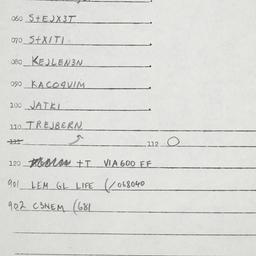 060 S+EJX3T
070 S+XITI
080 KEJLEN3N
090 KACOQVIM
100 JATKI
110 TREJBERN
115 112 O
120 +T VIAGOO FF
901 LEM GL LIFE (/068040
902 C3NEM (681